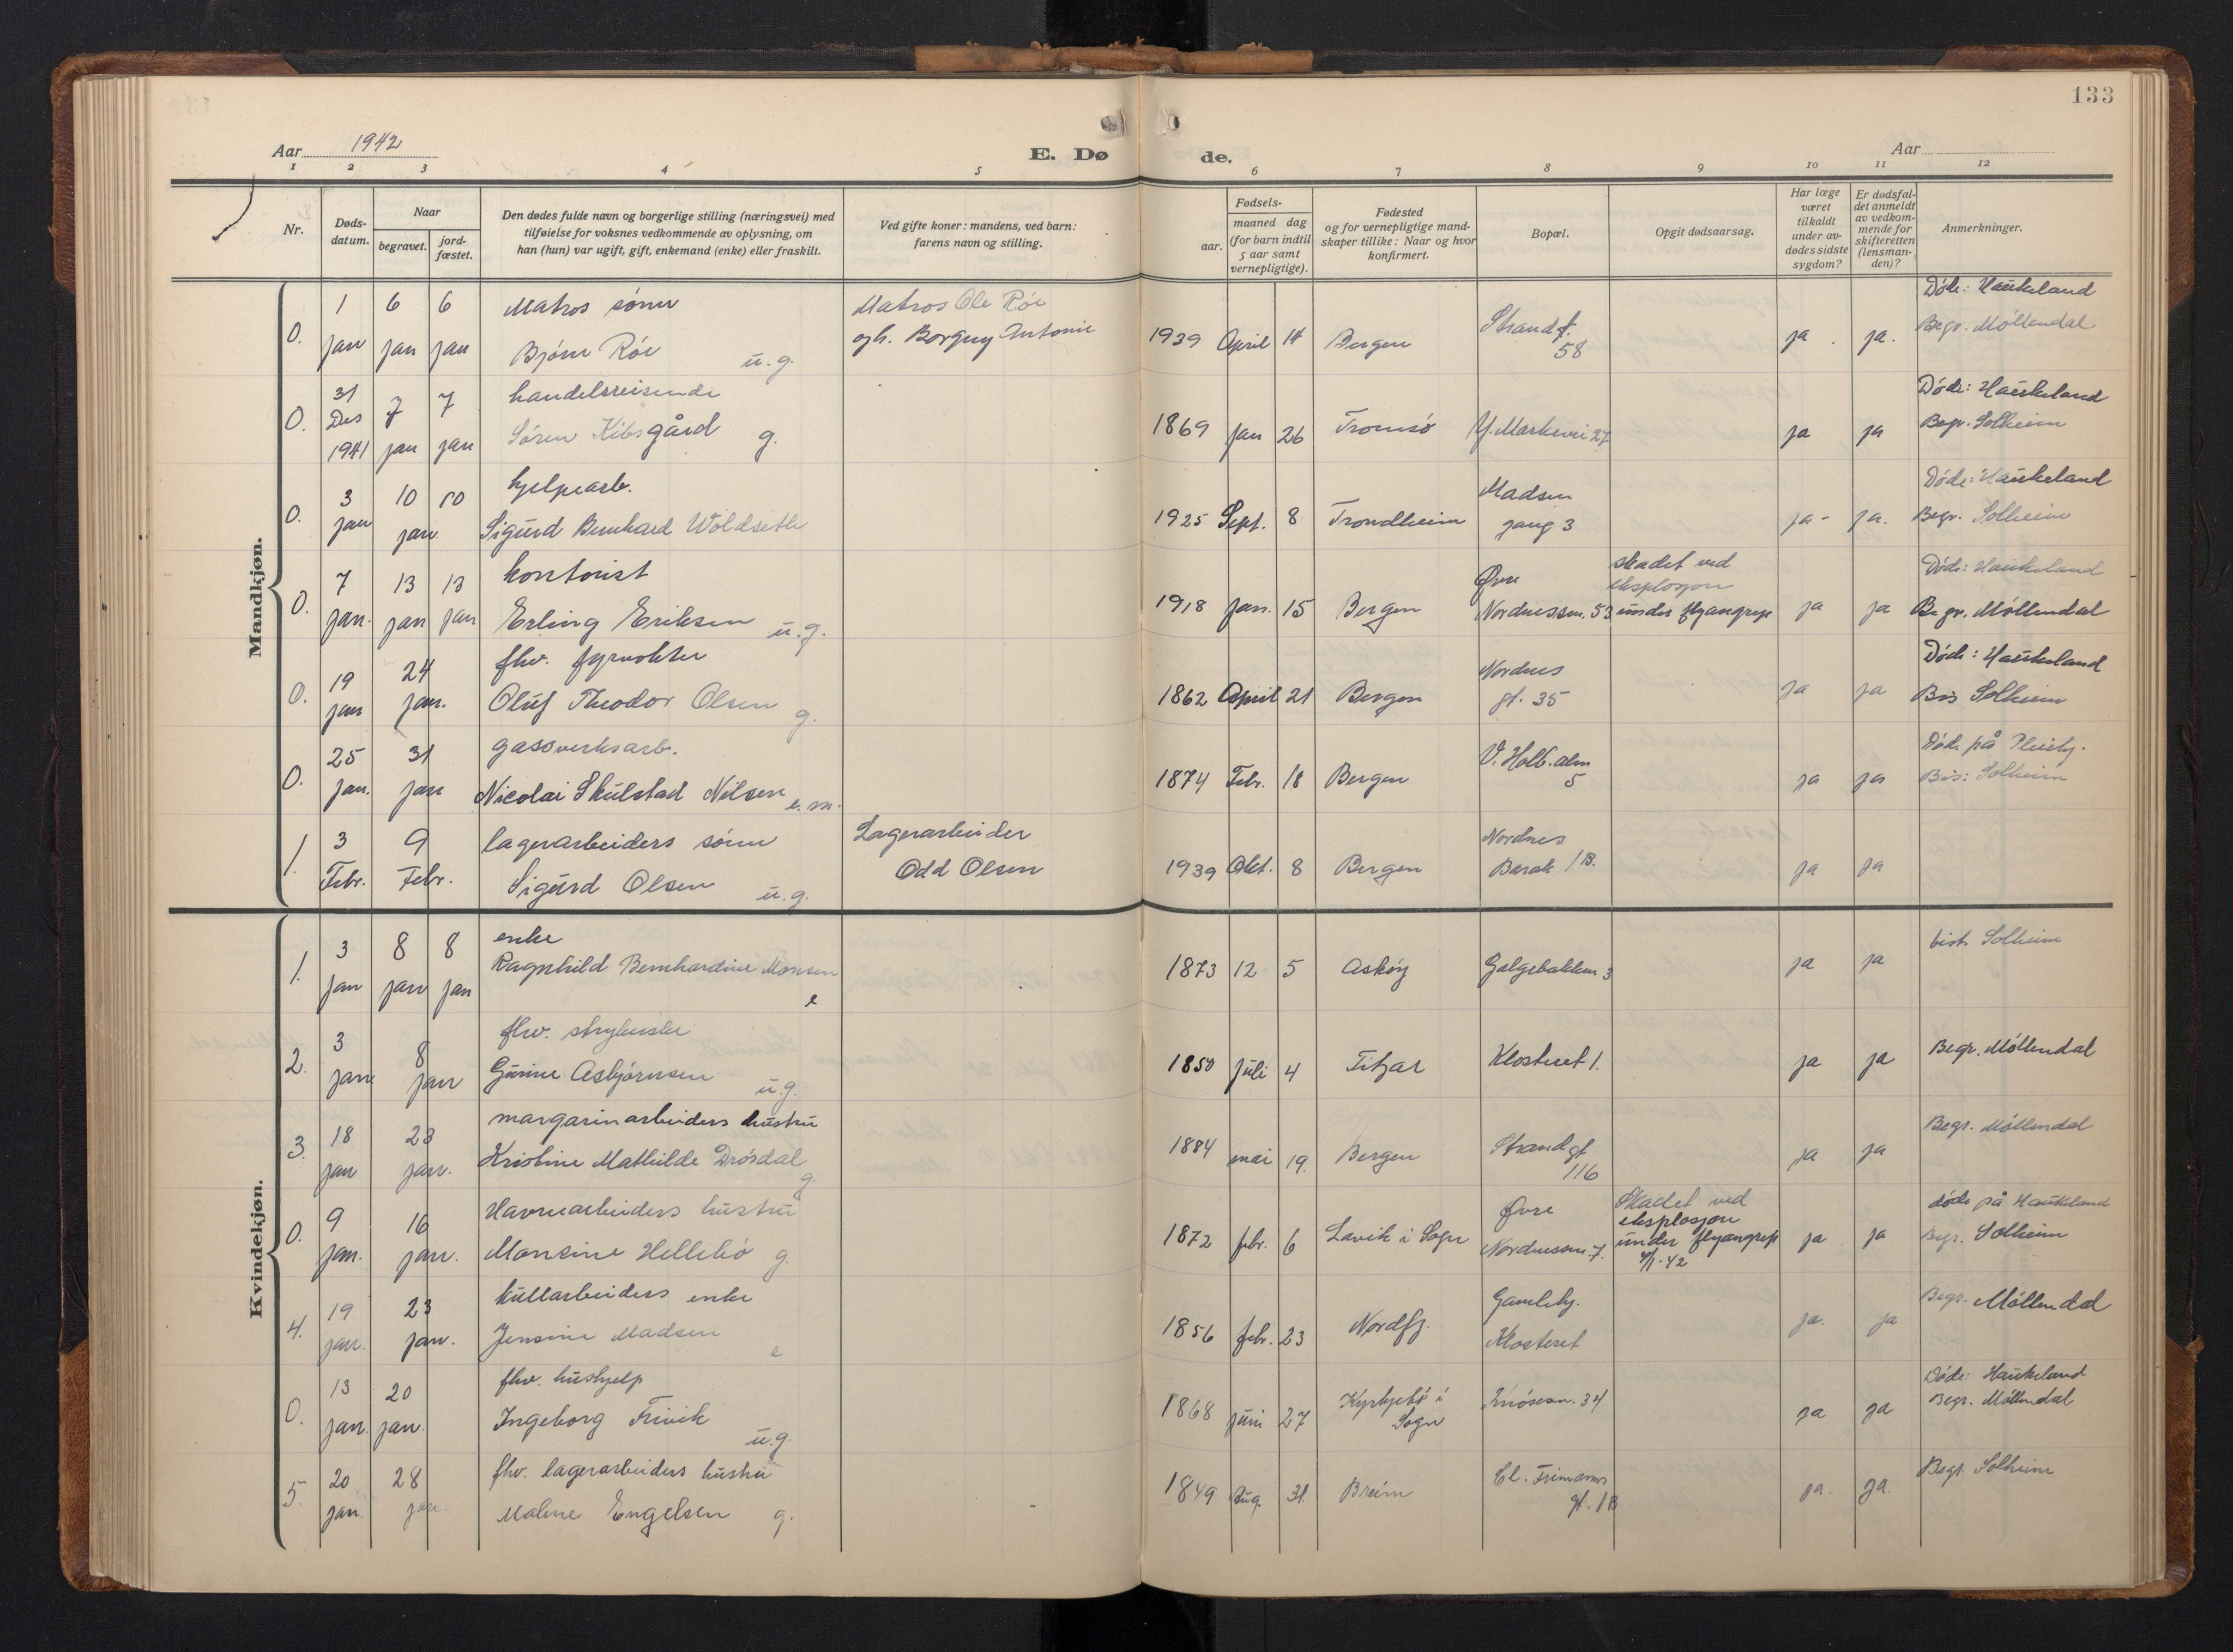 133
Aar 1942
E. Dø
de.
Aar
1 2 3 4 5 6 7 8 9 10 11 12
Nr.
Døds-
datum.
Naar
begravet.
jord-
fæstet.
Den dødes fulde navn og borgerlige stilling (næringsvei) med
tilføielse for voksnes vedkommende av oplysning, om
han (hun) var ugift, gift, enkemand (enke) eller fraskilt.
Ved gifte koner: mandens, ved barn:
farens navn og stilling.
Fødsels-
aar.
maaned dag
(for barn indtil
5 aar samt
vernepligtige).
Fødested
og for vernepligtige mand-
skaper tillike: Naar og hvor
konfirmert.
Bopæl.
Opgit dødsaarsag.
Har læge
været
tilkaldt
under av-
dødes sidste
sygdom?
Er dødsfal-
det anmeldt
av vedkom-
mende for
skifteretten
(lensman-
den)?
Anmerkninger.
Mandkjøn.
0. 1 jan 6 jan 6 jan
Matros sønn
Bjørn Röe u.g.
Matros Ole Röe
gh. Borgny Antonie
1939 April 14 Bergen
Strandgt.
58
ja. ja.
Döde: Haukeland
Begr. Möllendal
0. 31 Des 1941 7 jan 7 jan
handelsreisende
Sören Kibsgård g.
1869 jan 26 Tromsö
Y. Markevei 27
ja ja
Döde: Haukeland
Begr. Solheim
0. 3 jan 10 jan 10
hjelpearb.
Sigurd Bernhard Woldseth
1925 Sept. 8 Trondheim
Madsen
gang 3
ja - ja.
Döde: Haukeland
Begr. Solheim
0. 7 jan. 13 jan 13 jan
kontorist
Erling Eriksen u.g.
1918 jan. 15 Bergen
Øvre
Nordnessm. 53
skadet ved
eksplosjon
under flyangrep
ja ja
Döde: Haukeland
Begr. Möllendal
0. 19 jan 24 jan.
fhv. fyrvokter
Oluf Theodor Olsen g.
1862 April 21 Bergen
Nordnes
gt. 35
ja ja
Döde: Haukeland
Bis Solheim
0. 25 jan. 31 jan
gassverksarb.
Nicolai Skulstad Nilsen e.m.
1874 Febr. 18 Bergen
V. Holb. alm
5
ja ja
Död på Pleiehj.
Bis: Solheim
1. 3 Febr. 9 Febr.
lagerarbeiders sönn
Sigurd Olsen u.g.
Lagerarbeider
Odd Olsen
1939 Okt. 8 Bergen
Nordnes
Barak 1B.
ja ja
Kvindekjøn.
1. 3 jan 8 jan 8 jan
enke
Ragnhild Bernhardine Monsen
e
1873 12 5 Asköy
Galgebakken 3
ja ja
bist. Solheim
2. 3 jan 8 jan
fhv. strykerske
Gurine Asbjörnsen u.g.
1850 juli 4 Fitjar
Klosteret 1.
ja ja
Begr. Möllendal
3. 18 jan 23 jan.
margarinarbeiders hustru
Kristine Mathilde Drösdal g
1884 mai 19. Bergen
Strandgt
116
ja ja
Begr. Möllendal
0. 9 jan. 16 jan.
Havnearbeiders hustru
Monsine Hellebö g.
1872 febr. 6 Lavik i Sogn
Øvre
Nordnessm. 7.
Skadet ved
eksplosjon
under flyangrep
/1-42
ja ja
döde på Haukeland
Begr. Solheim
4. 19 jan. 23 jan.
kullarbeiders enke
Jensine Madsen e
1856 febr. 23 Nordfj.
Gamlehj.
Klosteret
ja. ja
Begr. Möllendal
0. 13 jan. 20 jan.
fhv. hushjelp
Ingeborg Trivik
u.g.
1868 juni 27
Kyrkjebö i
Sogn
Knösesm. 34
ja ja
Döde: Haukeland
Begr. Möllendal
5. 20 jan. 28 jan.
fhv. lagerarbeiders hustru
Malene Engelsen g.
1849 Aug. 31. Breim
Cl. Frimanns
gt. 1B
ja. ja.
Begr. Solheim